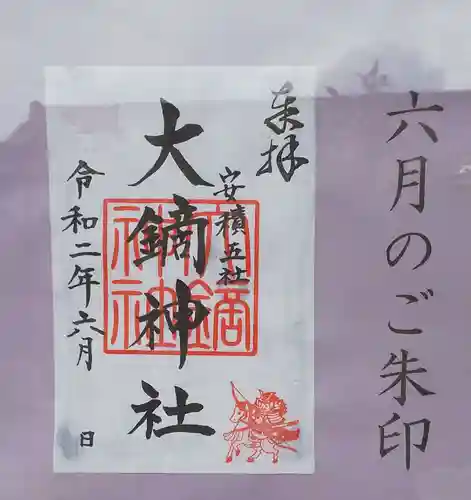 六月のご朱印
奉拝
安積五社
大鏑神社
大鏑神社
令和二年六月
日